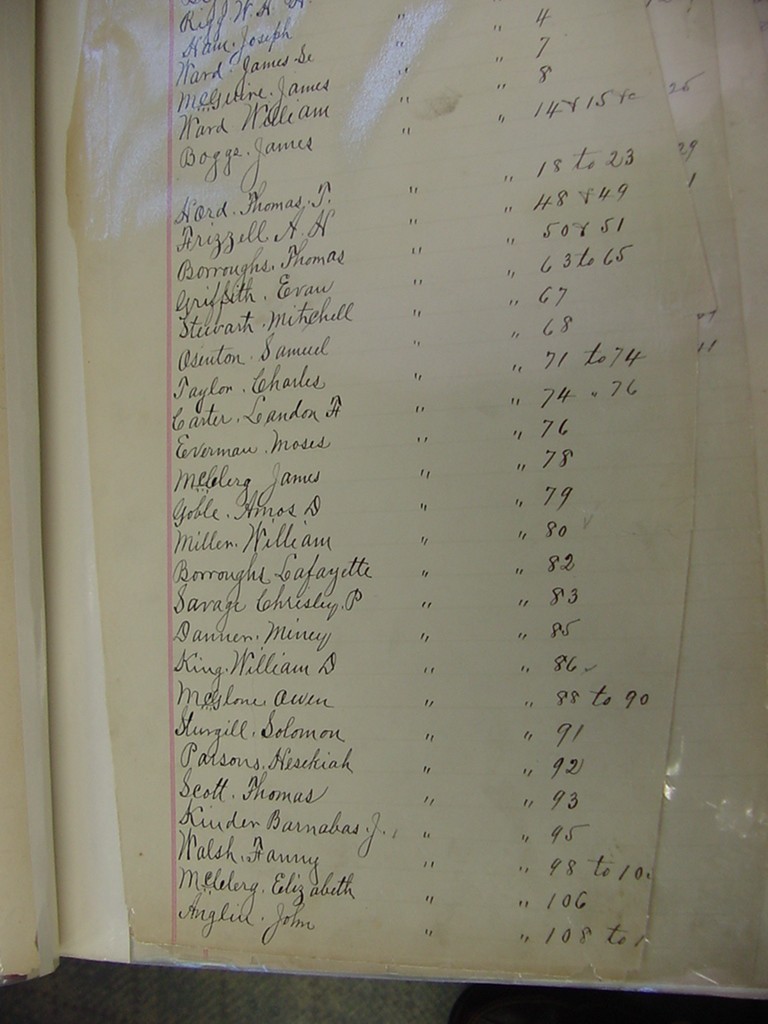 Riff W. H. H. " " 4
Ham. Joseph " " 7
Ward. James Sr " " 8
McGuire. James " " 14 & 15 &
Ward William " "
Boggs. James " 18 to 23
Hord. Thomas. T. " " 48 & 49
Frizzell A. H " " 50 & 51
Borroughs. Thomas " " 63 to 65
Griffith. Evan " " 67
Stewart. Mitchell " " 68
Osenton. Samuel " " 71 to 74
Taylor. Charles " " 74 " 76
Carter. Landon F " " 76
Everman. Moses " " 78
McClerg James " " 79
Goble. Amos D " " 80
Miller. William " " 82
Borroughs Lafayette " " 83
Savage Chrisley. P " " 85
Danner. Mincy " " 86
King. William D " " 88 to 90
McGlone. Owen " " 91
Sturgill. Solomon " " 92
Parsons. Hesekiah " " 93
Scott. Thomas " " 95
Kinder Barnabas. J. " " 98 to
Walsh. Fanny " " 106
McClerg. Elizabeth " " 108 to
Anglin. John